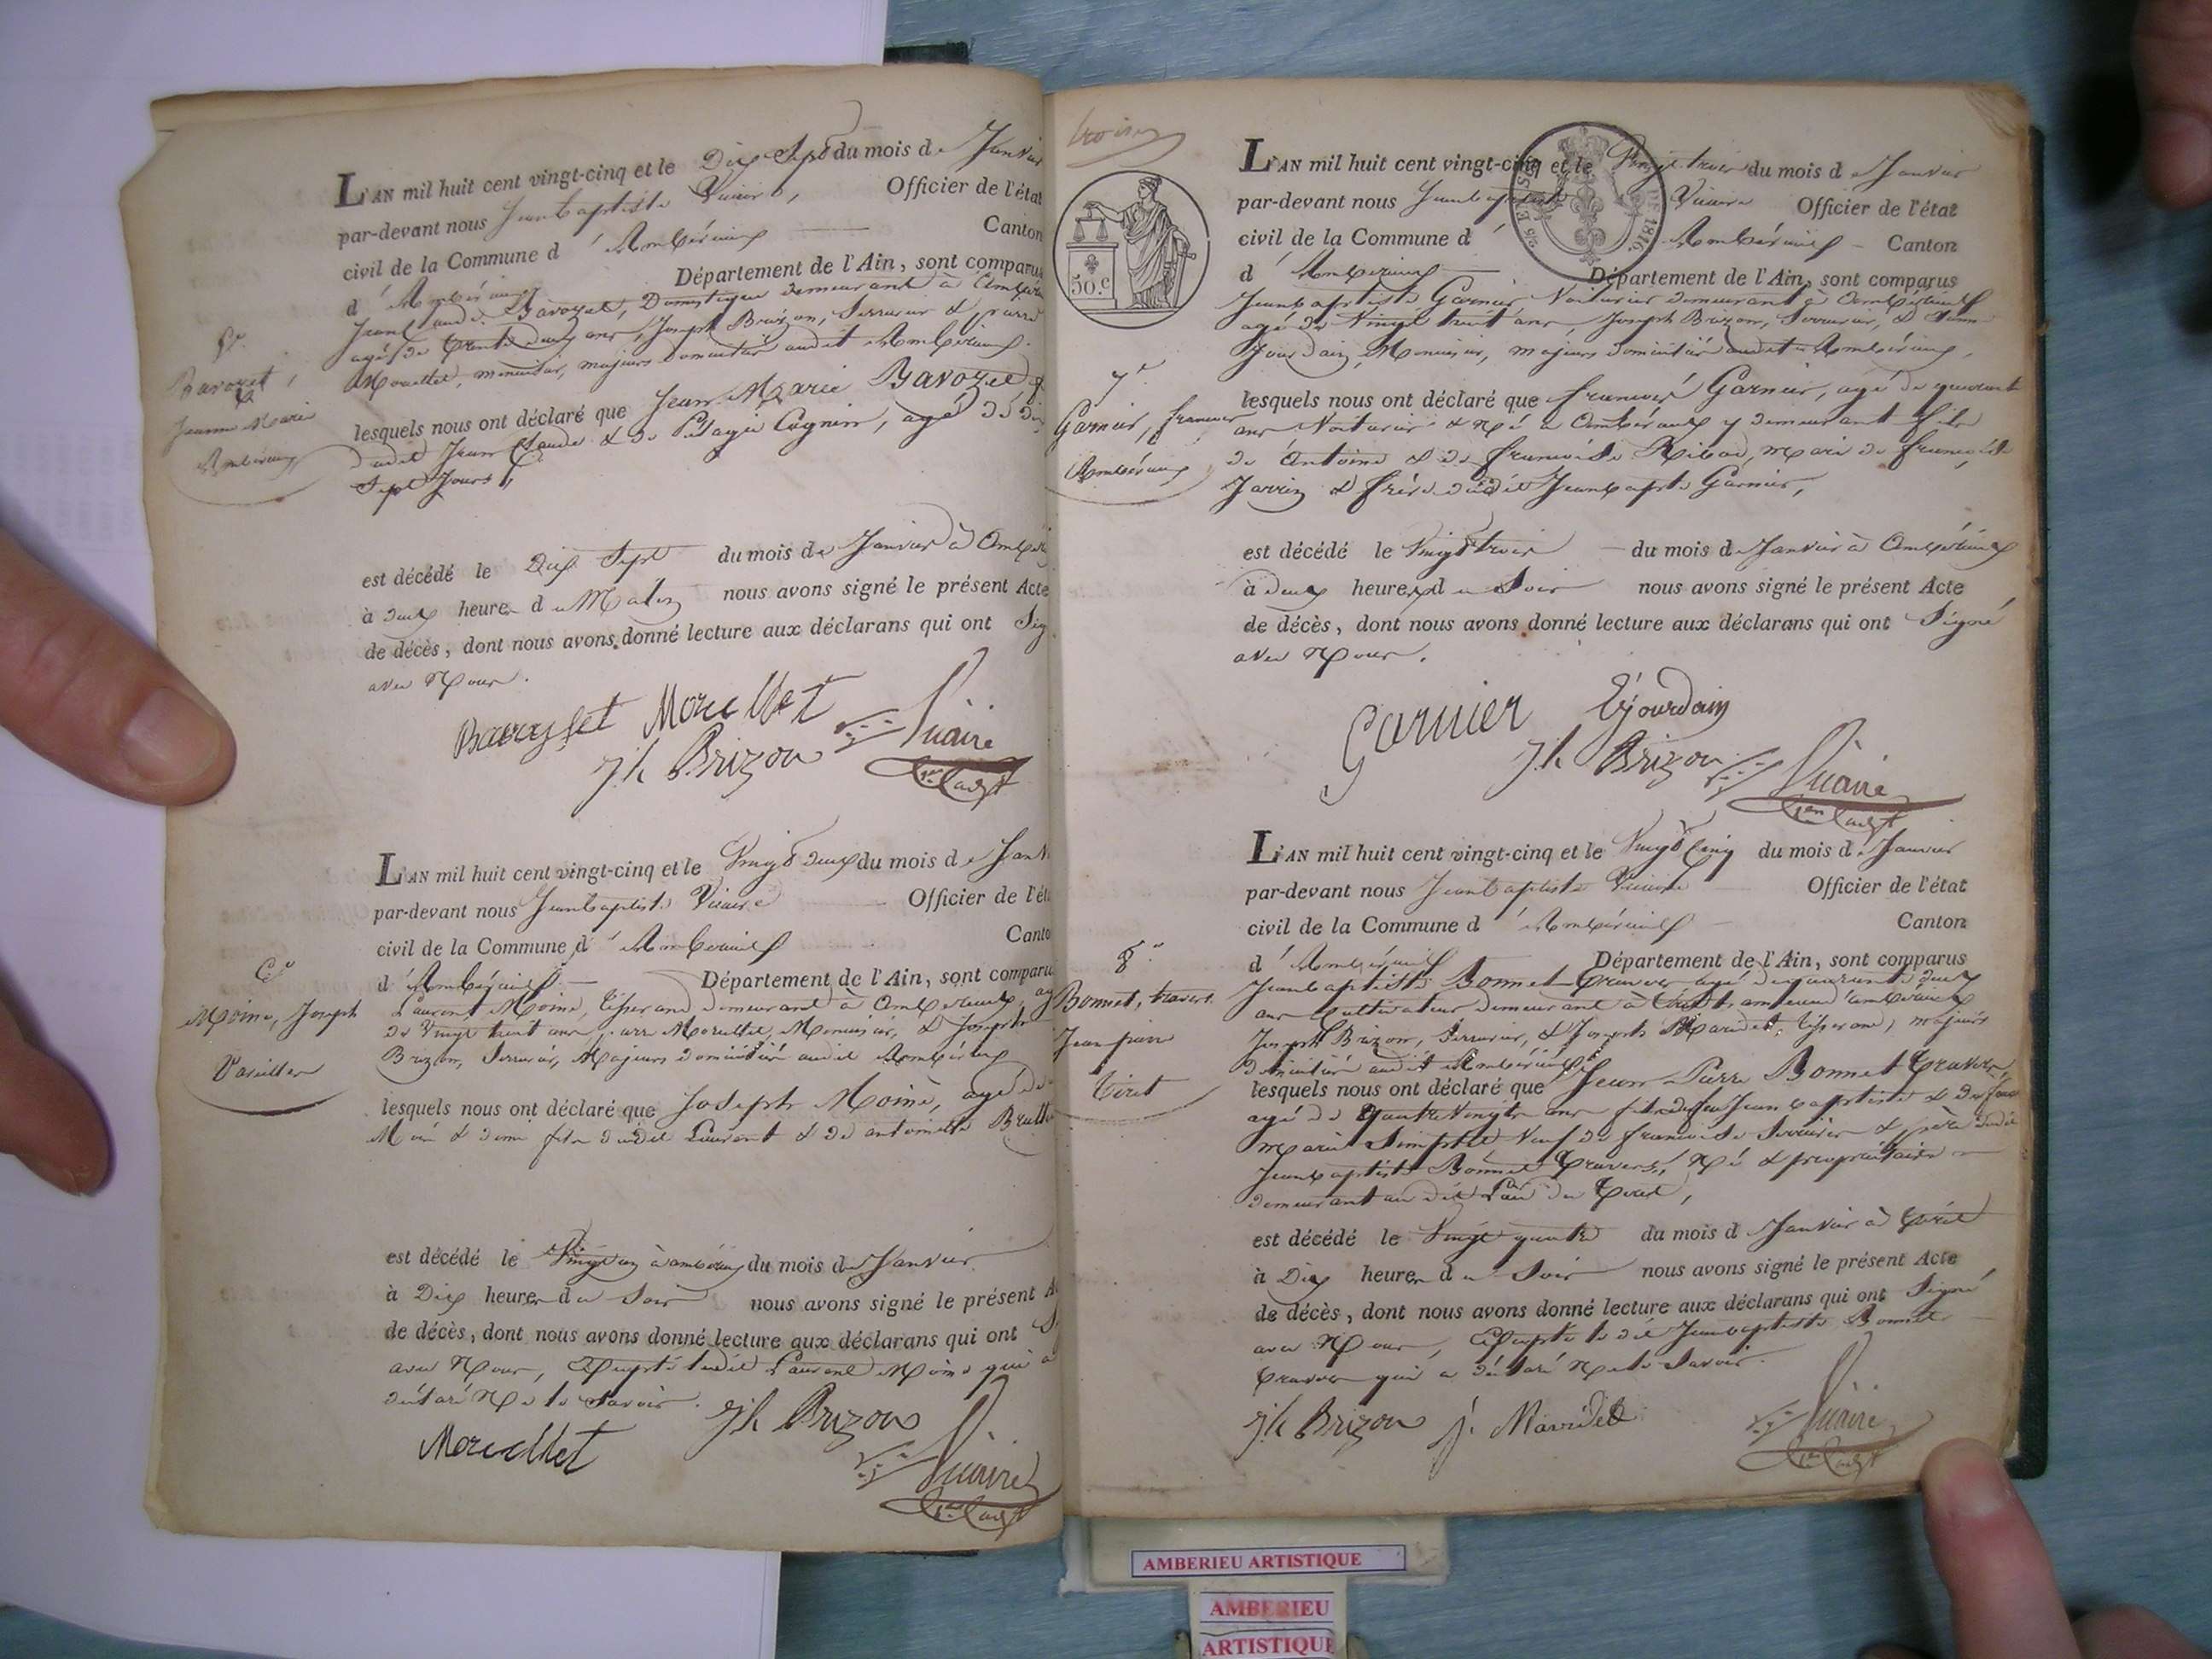 L'AN mil huit cent vingt-cinq et le Dix Sept du mois de Janvier
par-devant nous Jeanbaptiste Vicaire, Officier de l'état
civil de la Commune d'Ambérieux Canton
d'Ambérieux Département de l'Ain, sont comparus
Jean Claude Bavozet, Domestique demeurant à Ambérieux
agé de trente deux ans, Joseph Brizon, Serrurier & pierre
Morellet, menuisier, majeurs domiciliés audit Ambérieux.
5e.
Bavozet,
Jeanne Marie
Ambérieux
lesquels nous ont déclaré que Jean Marie Bavozet
dudit Jean Claude & de Pélagie Cognin, agé de dix
Sept Jours,
est décédé le Dix Sept du mois de Janvier à Ambérieux
à deux heures du Matin nous avons signé le présent Acte
de décès, dont nous avons donné lecture aux déclarans qui ont Sig
avec Nous.
Bavozet Morellet
Jh Brizon Vicaire
L'AN mil huit cent vingt-cinq et le Vingt deux du mois de Janv
par-devant nous Jeanbaptiste Vicaire Officier de l'éta
civil de la Commune d'Ambérieux Canto
d'Ambérieux Département de l'Ain, sont comparu
Laurent Moine, tisserand demeurant à Ambérieux, ag
de Vingt huit ans, pierre Morellet, Menuisier, & Joseph
Brizon, Serrurier, Majeurs domiciliés audit Ambérieux
6e
Moine, Joseph
lesquels nous ont déclaré que Joseph Moine, agé de
Mois & demi fils dudit Laurent & de antoinette
est décédé le Vingt un à ambérieux du mois de Janvier
à Dix heures du Soir nous avons signé le présent A
de décès, dont nous avons donné lecture aux déclarans qui ont S
avec Nous, Excepté ledit Laurent Moine qui a
déclaré Ne le Savoir.
Jh Brizon
Morellet Vicaire
trois
50.c
1816.
L'AN mil huit cent vingt-cinq et le Vingt trois du mois de Janvier
par-devant nous Jeanbaptiste Vicaire Officier de l'état
civil de la Commune d'Ambérieux Canton
d'Ambérieux Département de l'Ain, sont comparus
Jeanbaptiste Garnier Voiturier demeurant à Ambérieux
agé de Vingt huit ans, Joseph Brizon, Serrurier, &
Jourdain, Menuisier, majeurs domiciliés audit Ambérieux,
7e
Garnier, francois
Ambérieux
lesquels nous ont déclaré que francois Garnier, agé de quarante
ans Voiturier & Né à Ambérieux y demeurant fils
de Antoine & de francoise Ribod, mari de francoise
Jarrin & frère dudit Jeanbapte Garnier,
est décédé le Vingt trois du mois de Janvier à Ambérieux
à deux heures du Soir nous avons signé le présent Acte
de décès, dont nous avons donné lecture aux déclarans qui ont Signé
avec Nous.
Garnier Jourdain
Jh Brizon Vicaire
L'AN mil huit cent vingt-cinq et le Vingt Cinq du mois de Janvier
par-devant nous Jeanbaptiste Vicaire Officier de l'état
civil de la Commune d'Ambérieux Canton
d'Ambérieux Département de l'Ain, sont comparus
Jeanbaptiste Bonnet travers agé de quarante deux
ans Cultivateur demeurant à tiret, d'ambérieux
Joseph Brizon, Serrurier, & Joseph Maridet, tisserand, majeurs
domiciliés audit Ambérieux
8e.
Bonnet, travers.
Jean pierre
tiret
lesquels nous ont déclaré que Jean Pierre Bonnet travers,
agé de quatre Vingts ans fils de feu Jean baptiste & de
marie Veuf de francoise Serrurier & père dudit
Jeanbaptiste Bonnet travers, Né & propriétaire
demeurant au dit Lieu de tiret,
est décédé le Vingt quatre du mois de Janvier à tiret
à Dix heures du Soir nous avons signé le présent Acte
de décès, dont nous avons donné lecture aux déclarans qui ont Signé
avec Nous, Excepté le dit Jeanbaptiste Bonnet
travers qui a déclaré Ne le Savoir.
Jh Brizon j. Maridet Vicaire
AMBERIEU ARTISTIQUE
AMBERIEU
ARTISTIQUE